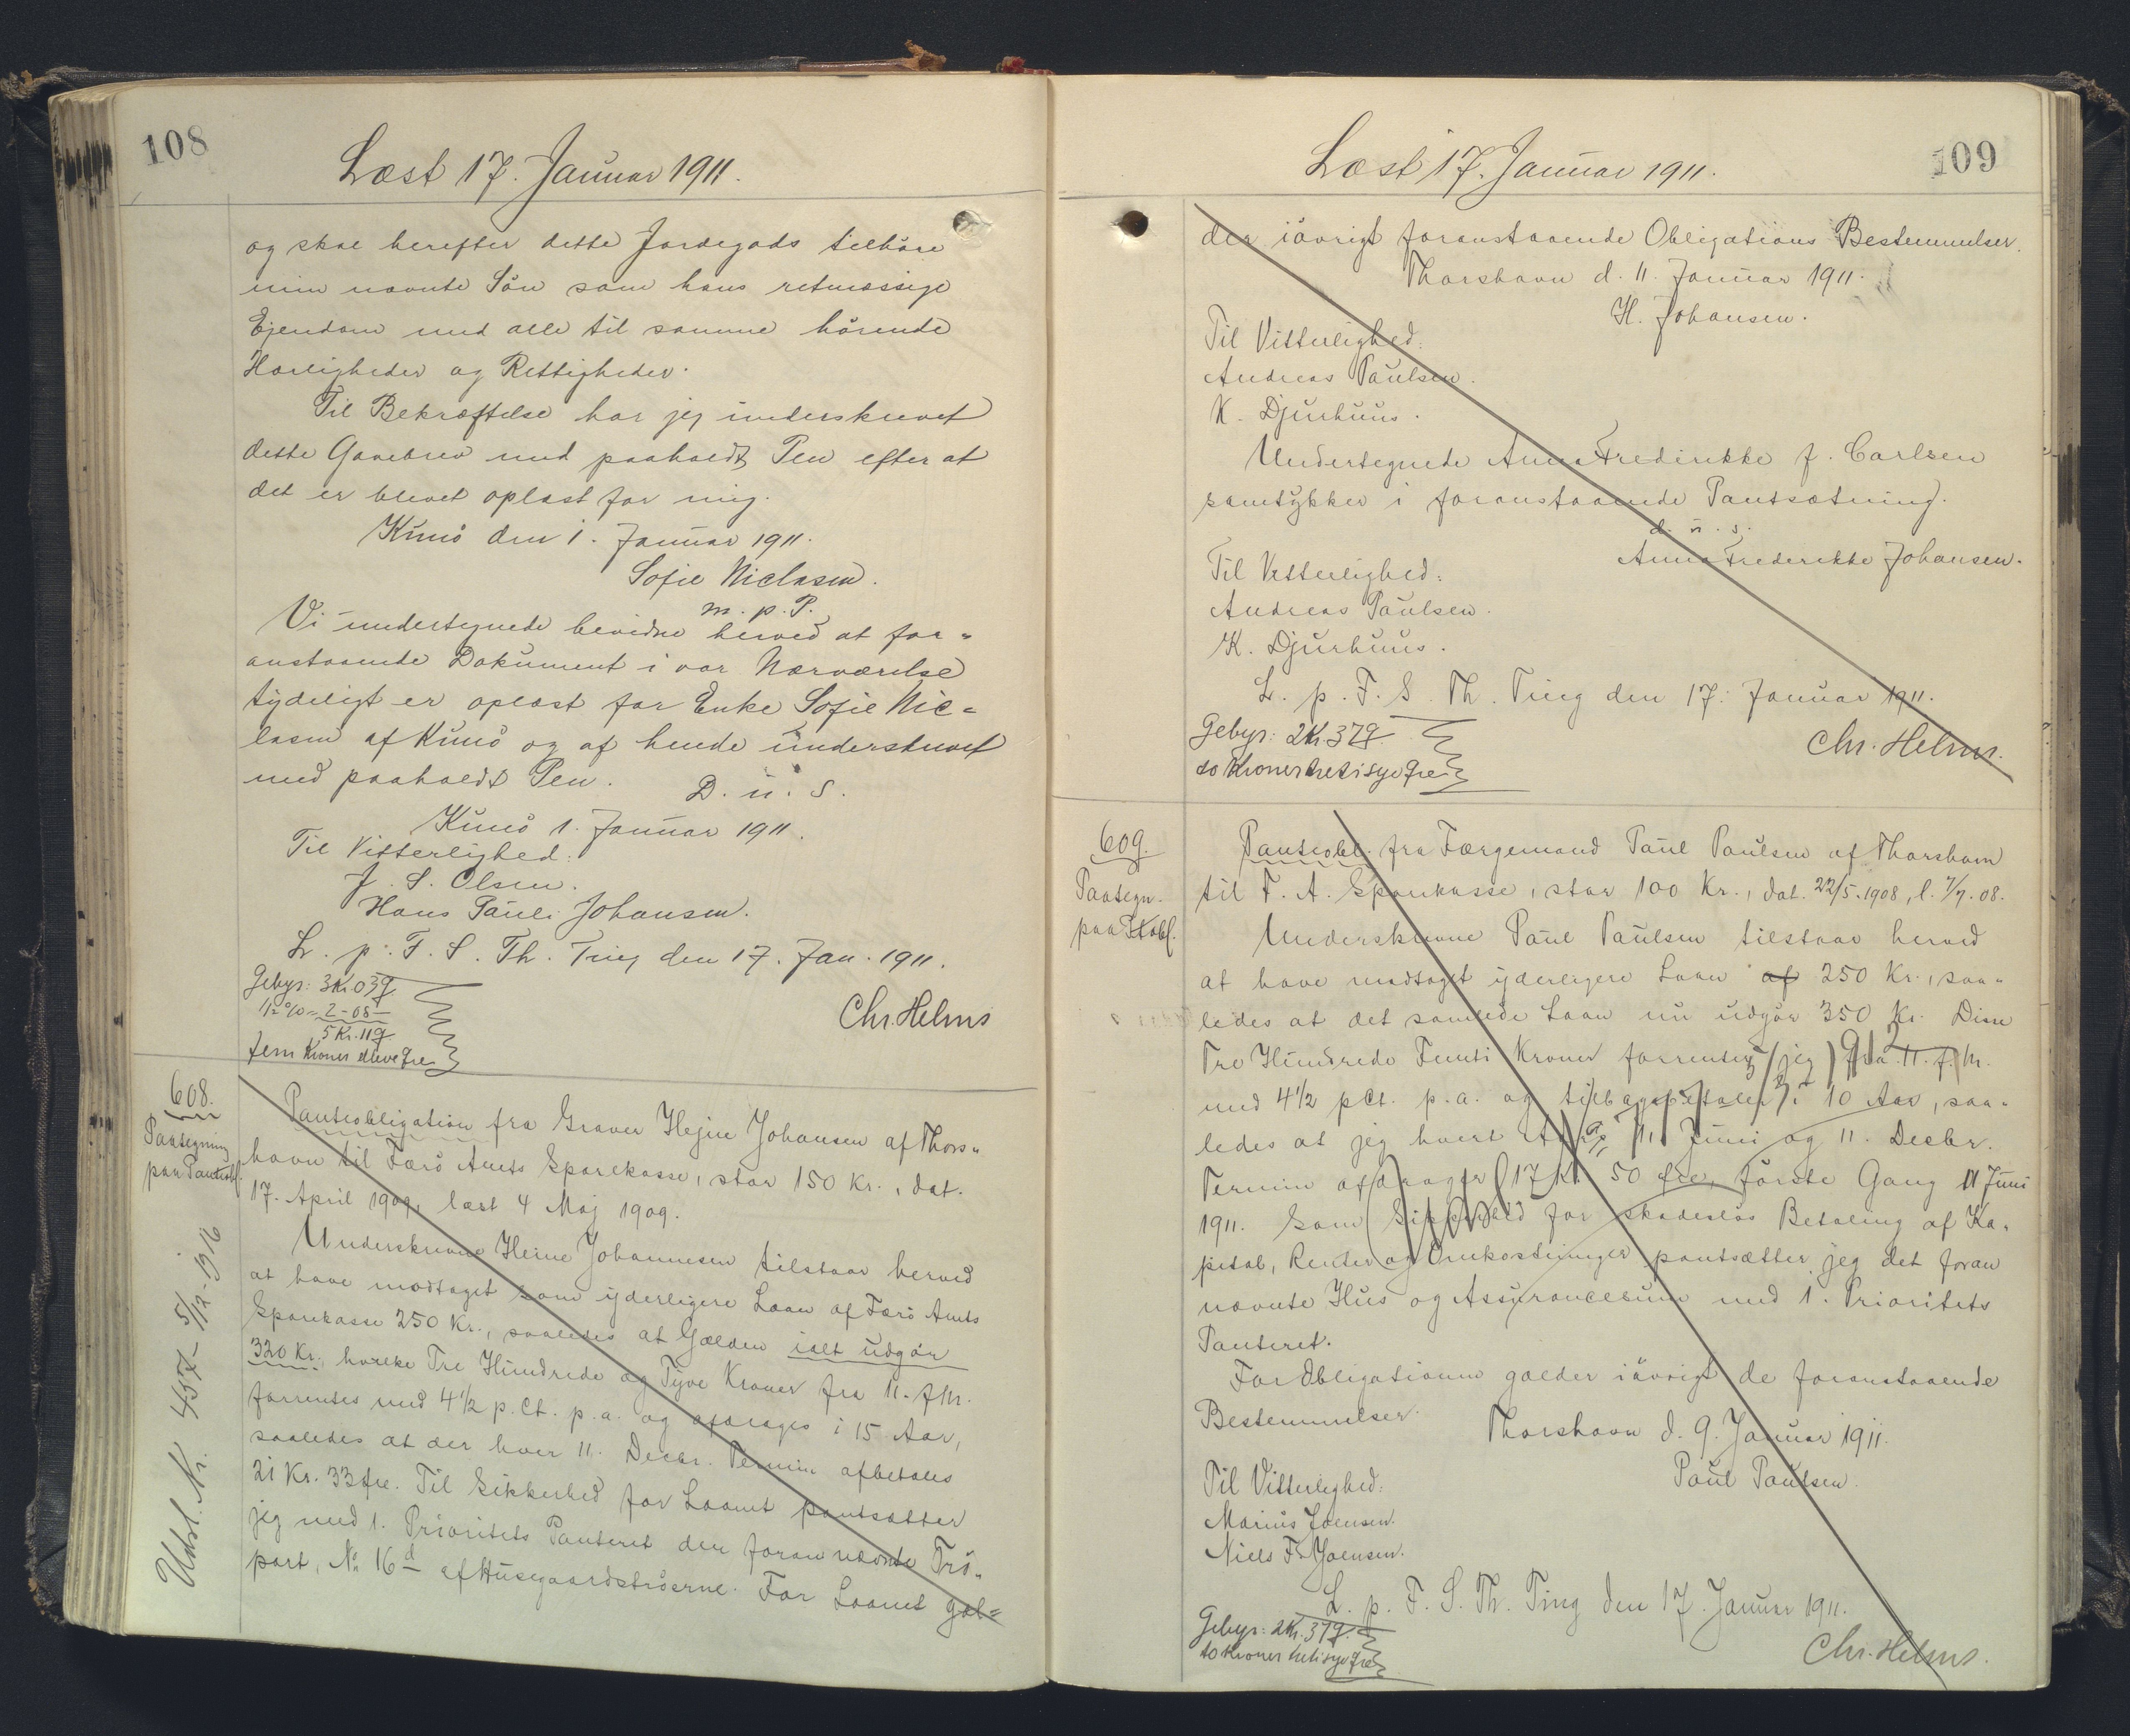 108
Læst 17. Januar 1911.
og skal herefter dette Jordegods tilhøre
min nævnte Søn som hans retmæssige
Ejendom med alle til samme hørende
Herligheder og Rettigheder.
Til Bekræftelse har jeg underskrevet
dette Gavebrev med paaholdt Pen efter at
det er blevet oplæst for mig.
Kunø den 1. Januar 1911.
Sofie Niclasen.
m. p. P.
Vi undertegnede bevidne herved at for-
anstaaende Dokument i vor Nærværelse
tydeligt er oplæst for Enke Sofie Nic=
lasen af Kunø og af hende underskrevet
med paaholdt Pen. D. u. S.
Kunø 1. Januar 1911.
Til Vitterlighed:
J. S. Olsen.
Hans Pauli Johansen.
L. p. F. S. Th. Ting den 17. Jan. 1911.
Gebyr: 3 Kr. 03 Ø
1/2 % = 2 - 08 -
5 Kr. 11 Ø
fem Kroner elleve Øre
Chr. Helms
608.
Paategning
paa Panteobl.
Udsl. Nr. 457 - 5/12-1916
Panteobligation fra Graver Hejne Johansen af Thors-
havn til Færø Amts Sparekasse, stor 150 Kr., dat.
17. April 1909, læst 4 Maj 1909.
Underskrevne Heine Johannesen tilstaar herved
at have modtaget som yderligere Laan af Færø Amts
Sparekasse 250 Kr., saaledes at Gælden ialt udgør
320 Kr., hvilke Tre Hundrede og Tyve Kroner fra 11. f. M.
forrentes med 4 1/2 p. Ct. p. a. og afdrages i 15 Aar,
saaledes at der hver 11. Decbr. Termin afbetales
21 Kr. 33 Øre. Til Sikkerhed for Laanet pantsætter
jeg med 1. Prioritets Panteret den foran nævnte Trø-
part, No 16 d af Husegaardstrøerne. For Laanet gæl=
Læst 17. Januar 1911.
109
der iøvrigt foranstaaende Obligations Bestemmelser.
Thorshavn d. 11. Januar 1911.
H. Johansen.
Til Vitterlighed:
Andreas Paulsen.
K. Djurhuus.
Undertegnede Anna Fredirikke f. Carlsen
samtykker i foranstaaende Pantsætning.
d. u. s.
Anna Frederikke Johansen.
Til Vitterlighed:
Andreas Paulsen.
K. Djurhuus.
L. p. F. S. Th. Ting den 17. Januar 1911.
Gebyr: 2 Kr. 37 Ø
to Kroner tretisyv Øre
Chr. Helms.
609.
Paategn.
paa Ptobl.
Panteobl. fra Færgemand Paul Paulsen af Thorshavn
til F. A. Sparekasse, stor 100 Kr., dat. 22/5. 1908, l. 7/7. 08.
Underskrevne Paul Paulsen tilstaar herved
at have modtaget yderligere Laan af 250 Kr., saa-
ledes at det samlede Laan nu udgør 350 Kr. Disse
Tre Hundrede Femti Kroner forrenter jeg fra 11. f. M.
med 4 1/2 pCt. p. a. og tilbagebetaler i 10 Aar, saa-
ledes at jeg hvert Aars 11. Juni og 11. Decbr.
Termin afdrager 17 Kr. 50 Øre, første Gang 11 Juni
1911. Som Sikkerhed for skadesløs Betaling af Ka-
pital, Renter og Omkostninger pantsætter jeg det foran
nævnte Hus og Assurancesum med 1. Prioritets
Panteret.
For Obligationen gælder iøvrigt de foranstaaende
Bestemmelser.
Thorshavn d. 9. Januar 1911.
Paul Paulsen.
Til Vitterlighed:
Marius Joensen.
Niels F. Joensen.
L. p. F. S. Th. Ting den 17. Januar 1911.
Gebyr: 2 Kr. 37 Ø
to Kroner tretisyv Øre
Chr. Helms.